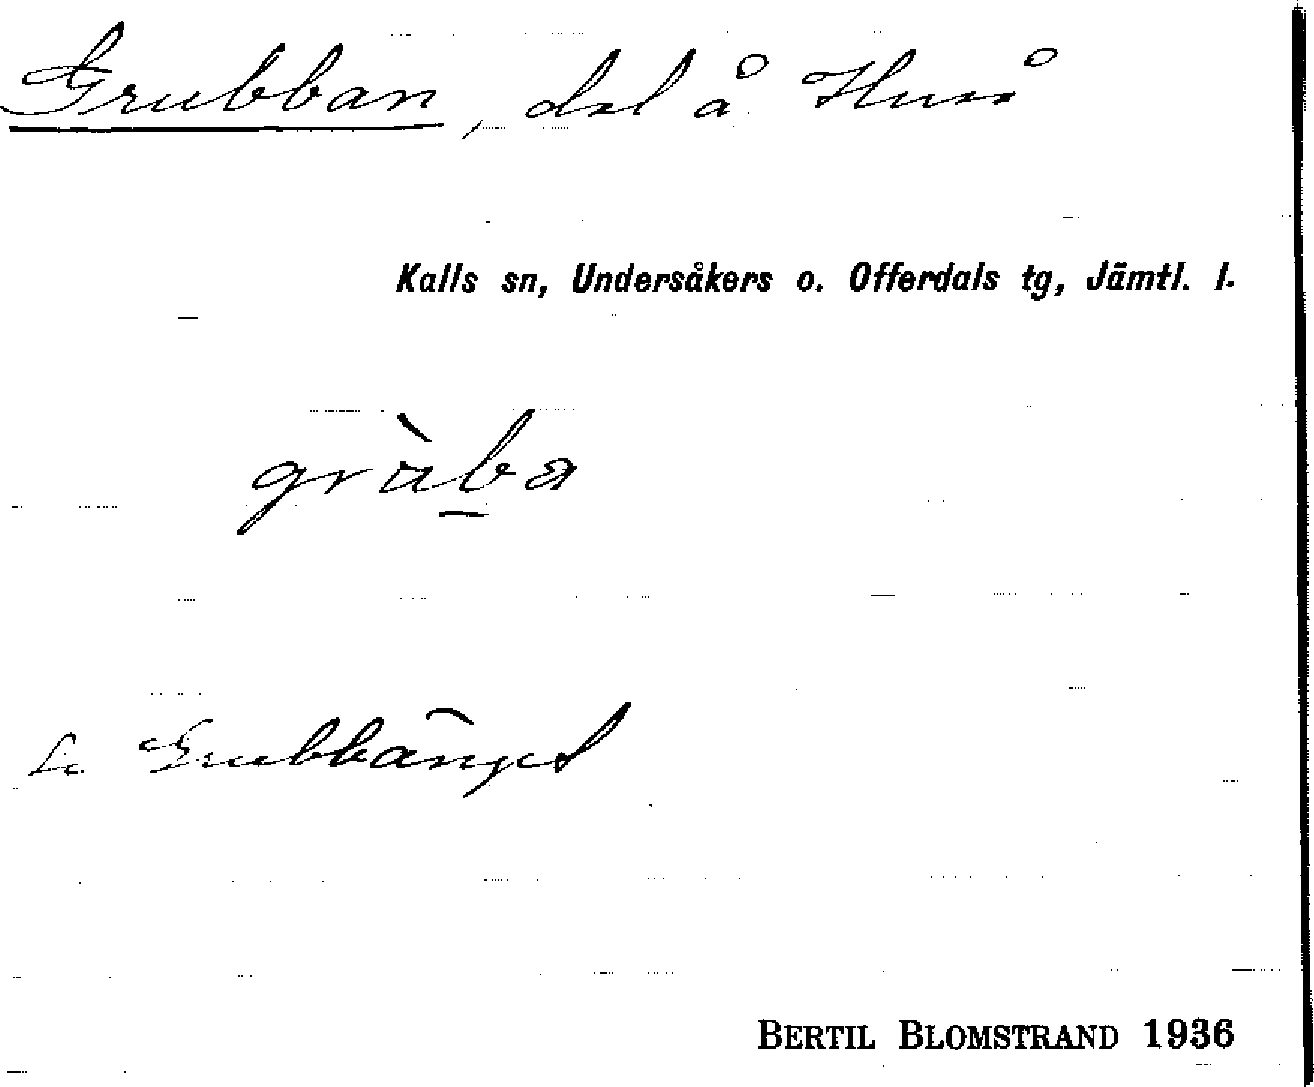 Grubban, del å Huså
Kalls sn, Undersåkers o. Offerdals tg, Jämtl. l.
gràba
Se Grubbänget
BERTIL BLOMSTRAND 1936